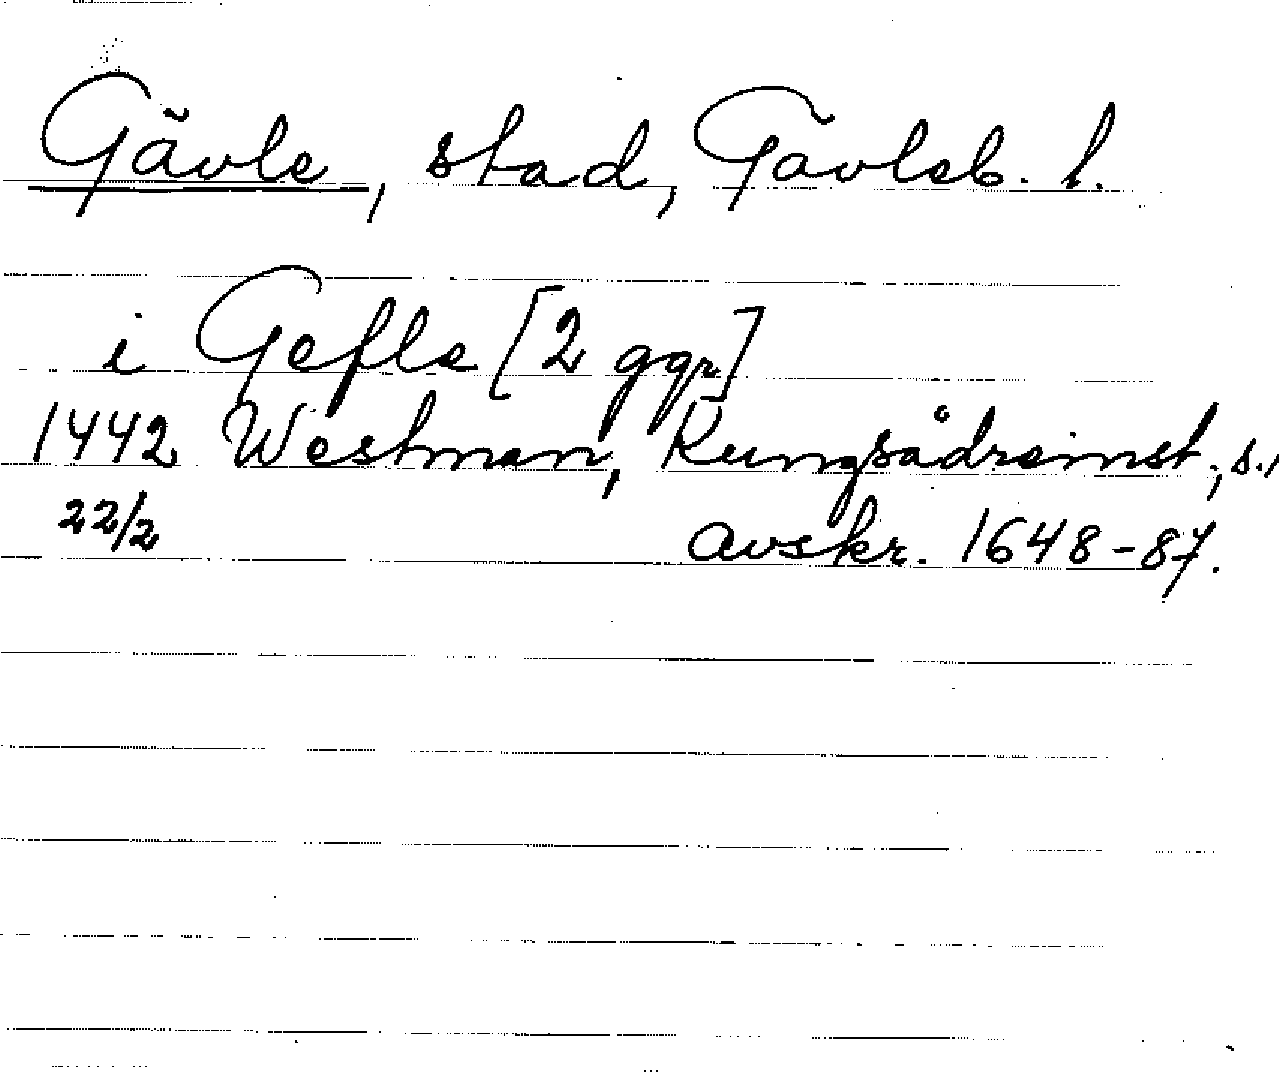 Gävle, stad, Gävleb. l.
i Gefle [2 ggr]
1442 Westman, Kungsådreinst., s.1
22/2 avskr. 1648-87.